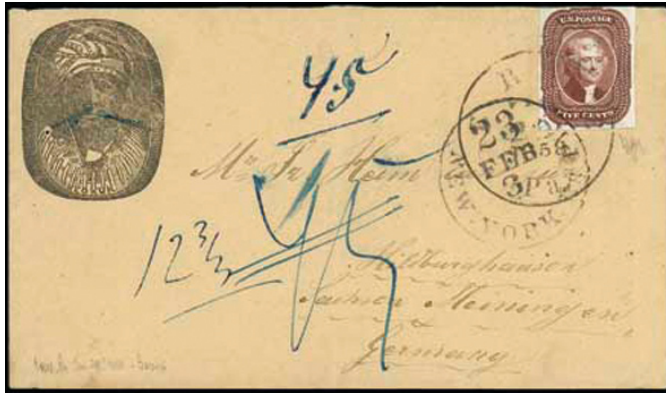 U.S. POSTAGE
FIVE CENTS
45
23
FEB 58
3 P
NEW-YORK
Mr Fr Heim
12 2/3
45
Hildburghausen
Sachsen Meiningen
Germany